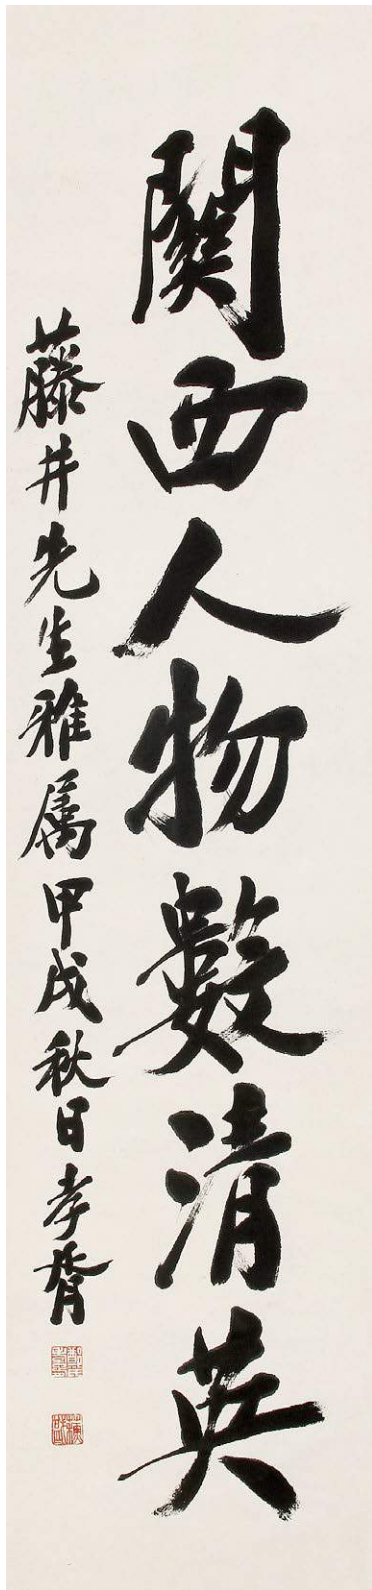 關西人物數清英
藤井先生雅屬甲戌秋日孝胥